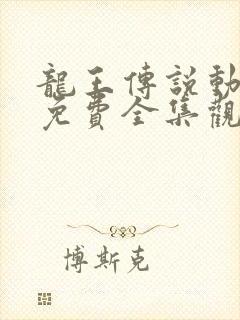 龍王傳說動
免費全集觀
博斯克